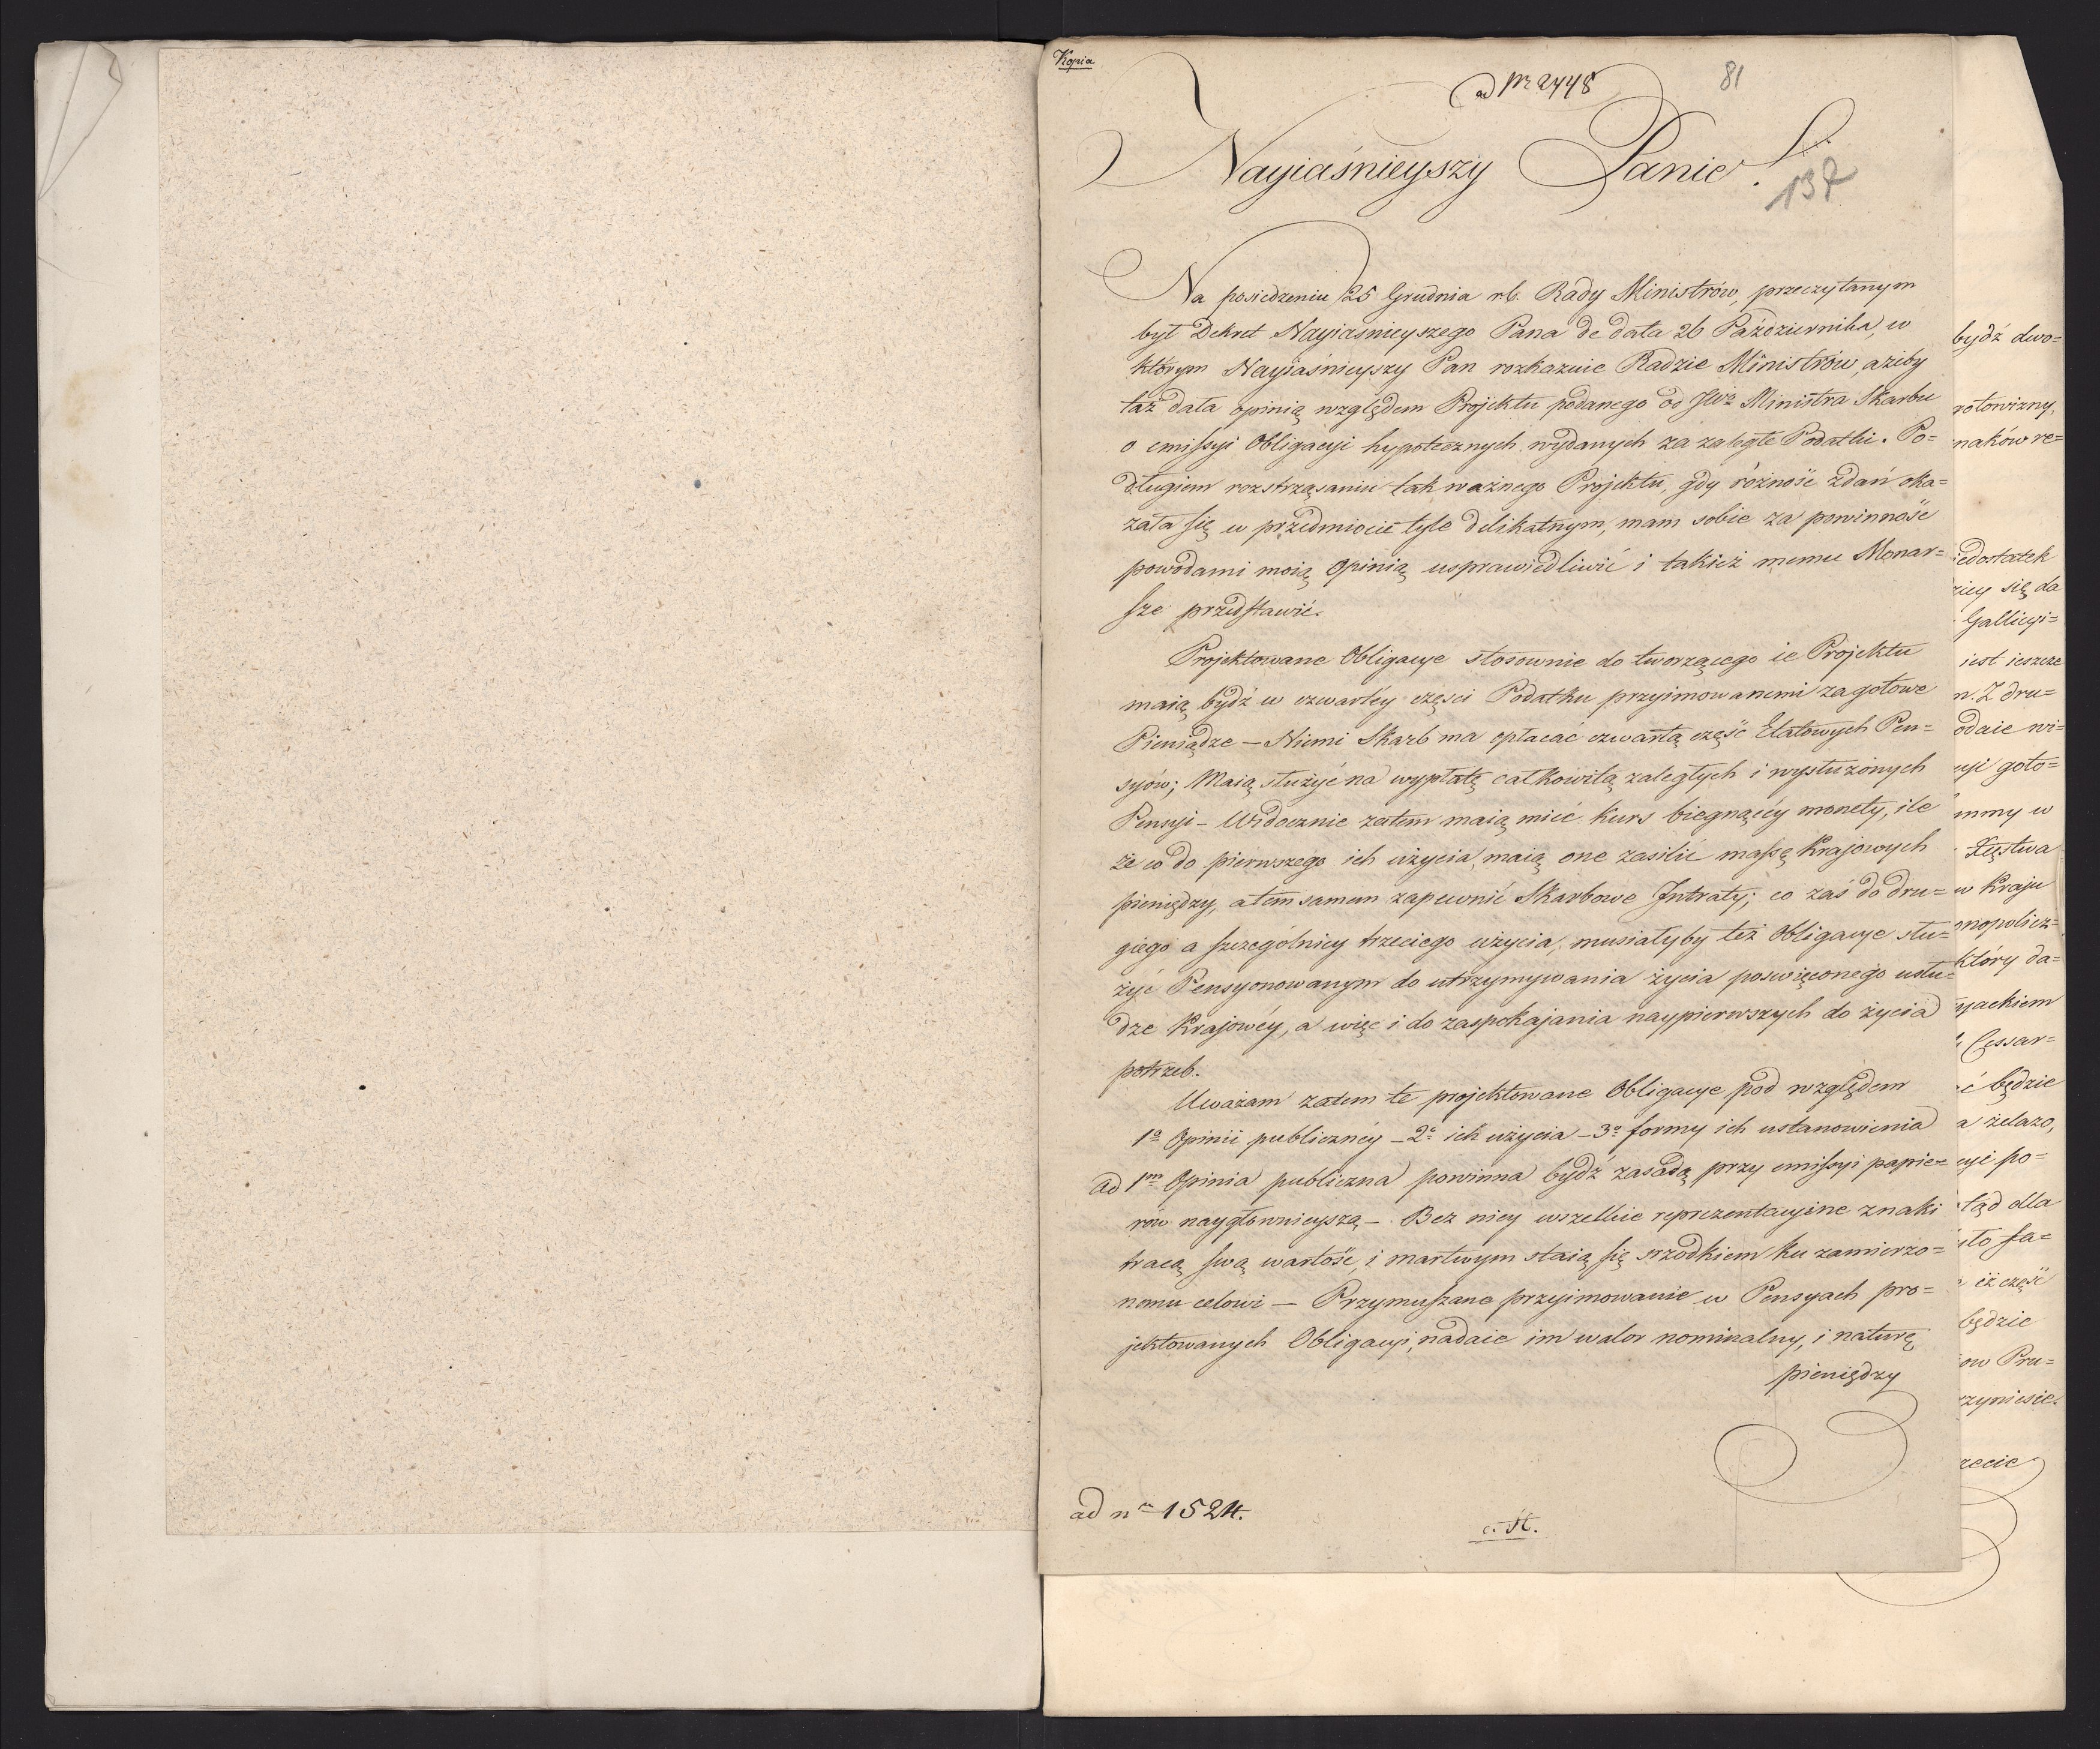 Kopia
ad Nr 2448
81
Nayiaśnieyszy Panie!
137
Na posiedzeniu 25 Grudnia r.b. Rady Ministrów, przeczytanym
był Dekret Nayiaśnieyszego Pana de data 26 Października, w
którym Nayiaśnieyszy Pan rozkazuie Radzie Ministrów, ażeby
taż dała opinią względem Projektu podanego od JWo Ministra Skarbu
o emissyi Obligacyi hypotecznych wydanych za zaległe Podatki. Po=
długiem rozstrząsaniu tak ważnego Projektu, gdy różność zdań oka=
zała się w przedmiocie tyle delikatnym, mam sobie za powinność
powodami moią Opinią usprawiedliwić i takież memu Monar=
sze przedstawić.
Projektowane Obligacye stosownie do tworzącego ie Projektu
maią bydź w czwartéy części Podatku przyimowanemi za gotowe
Pieniądze — Niemi Skarb ma opłacać czwartą część Etatowych Pen=
syów; Maią służyć na wypłatę całkowitą zaległych i wysłużonych
Pensyi — Widocznie zatem maią mieć kurs biegnącéy monety, ile
że co do pierwszego ich użycia, maią one zasilić massę Krajowych
pieniędzy, a tem samem zapewnić Skarbowe Intraty; co zaś do dru=
giego a szczególniey trzeciego użycia, musiałyby też Obligacye słu=
żyć Pensyonowanym do utrzymywania życia poswięconego usłu=
dze Krajowéy, a więc i do zaspokajania naypierwszych do życia
potrzeb.
Uważam zatem te projektowane Obligacye pod względem
1o Opinii publicznéy — 2o ich użycia — 3o formy ich ustanowienia
ad 1m Opinia publiczna powinna bydź zasadą przy emissyi papie=
rów naygłownieyszą —. Bez niey wszelkie reprezentacyine znaki
tracą swą wartość, i martwym staią się srzodkiem ku zamierzo=
nemu celowi — Przymuszane przyimowanie w Pensyach pro=
jektowanych Obligacyi, nadaie im walor nominalny, i naturę
pieniędzy
ad nr 1524.
bydź dwo=
rotowizny,
naków re=
iedostatek
ziey się da
Gallicyi=
iest ieszcze
n. Z dru=
odaie wi=
cyi goto=
mmy w
Xięstwa
w Kraju
onopolicz=
który da=
Cessar=
ć będzie
a żelazo,
cyi po=
tąd dla
sto fa=
iż część
będzie
ow Pru=
rzyniesie.
rzecie